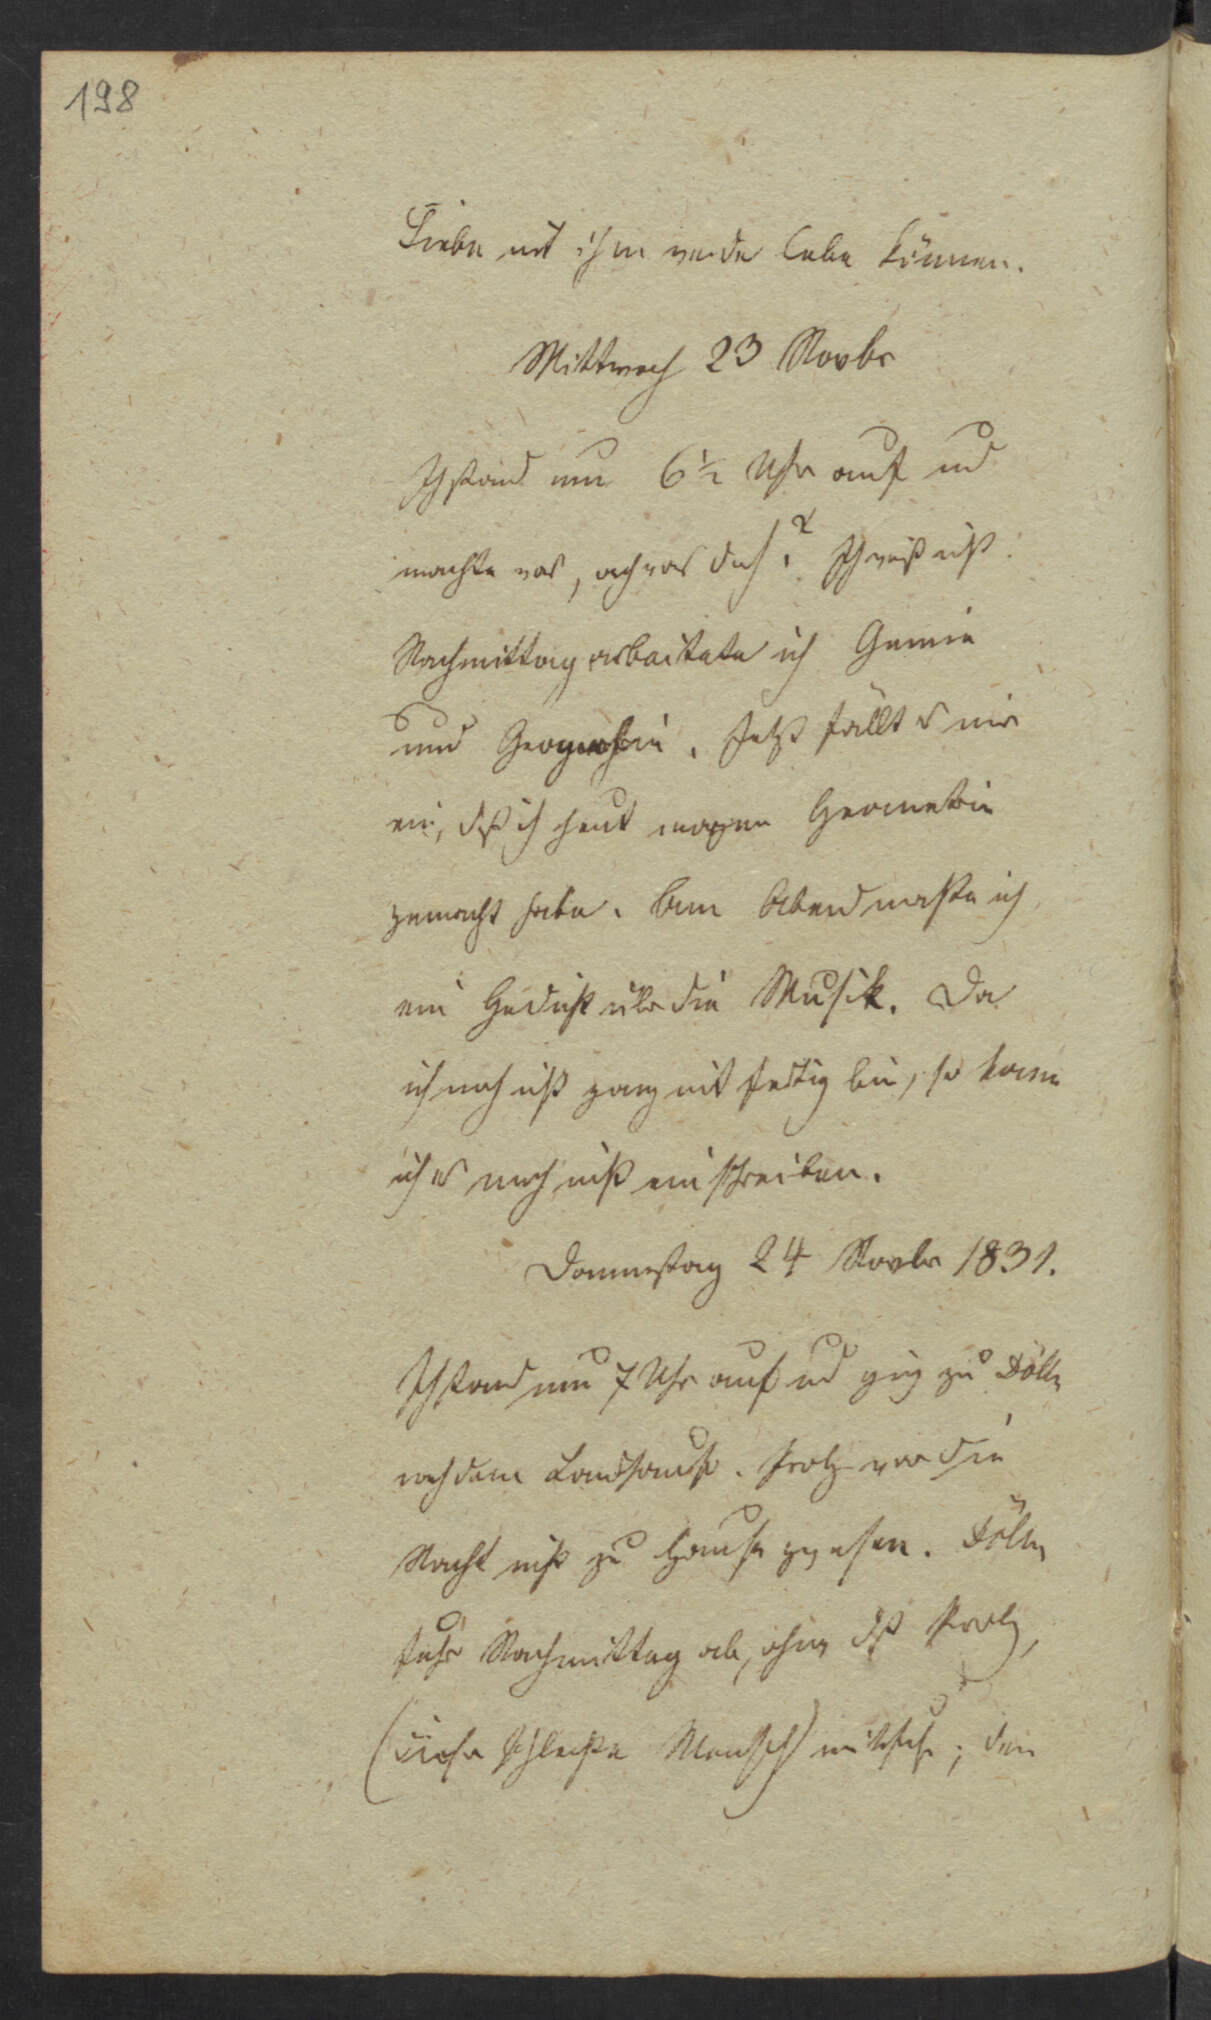 198
Liebe mit ihm werde lebe können.
Mittwoch 23 Novbr
Ich stand um 6½ Uhr auf und
machte was, ach was doch? Ich weiß nicht.
Nachmittag arbeitete ich
und Geographie. Jetzt fällt es mir
ein, daß ich heut morgen Geometrie
gemacht habe. Am Abend machte ich
ein Gedicht über die Musik. Da
ich noch nicht ganz mit fertig bin, so kann
ich es noch nicht einschreiben.
Donnerstag 24 Novbr 1831.
Ich stand um 7 Uhr auf und ging zu Döll
nach dem Landhause. war die
Nacht nicht zu Hause gewesen. Döll
fuhr Nachmittag ab, ohne daß
(dieser schlechte Mensch) mitfuhr; den